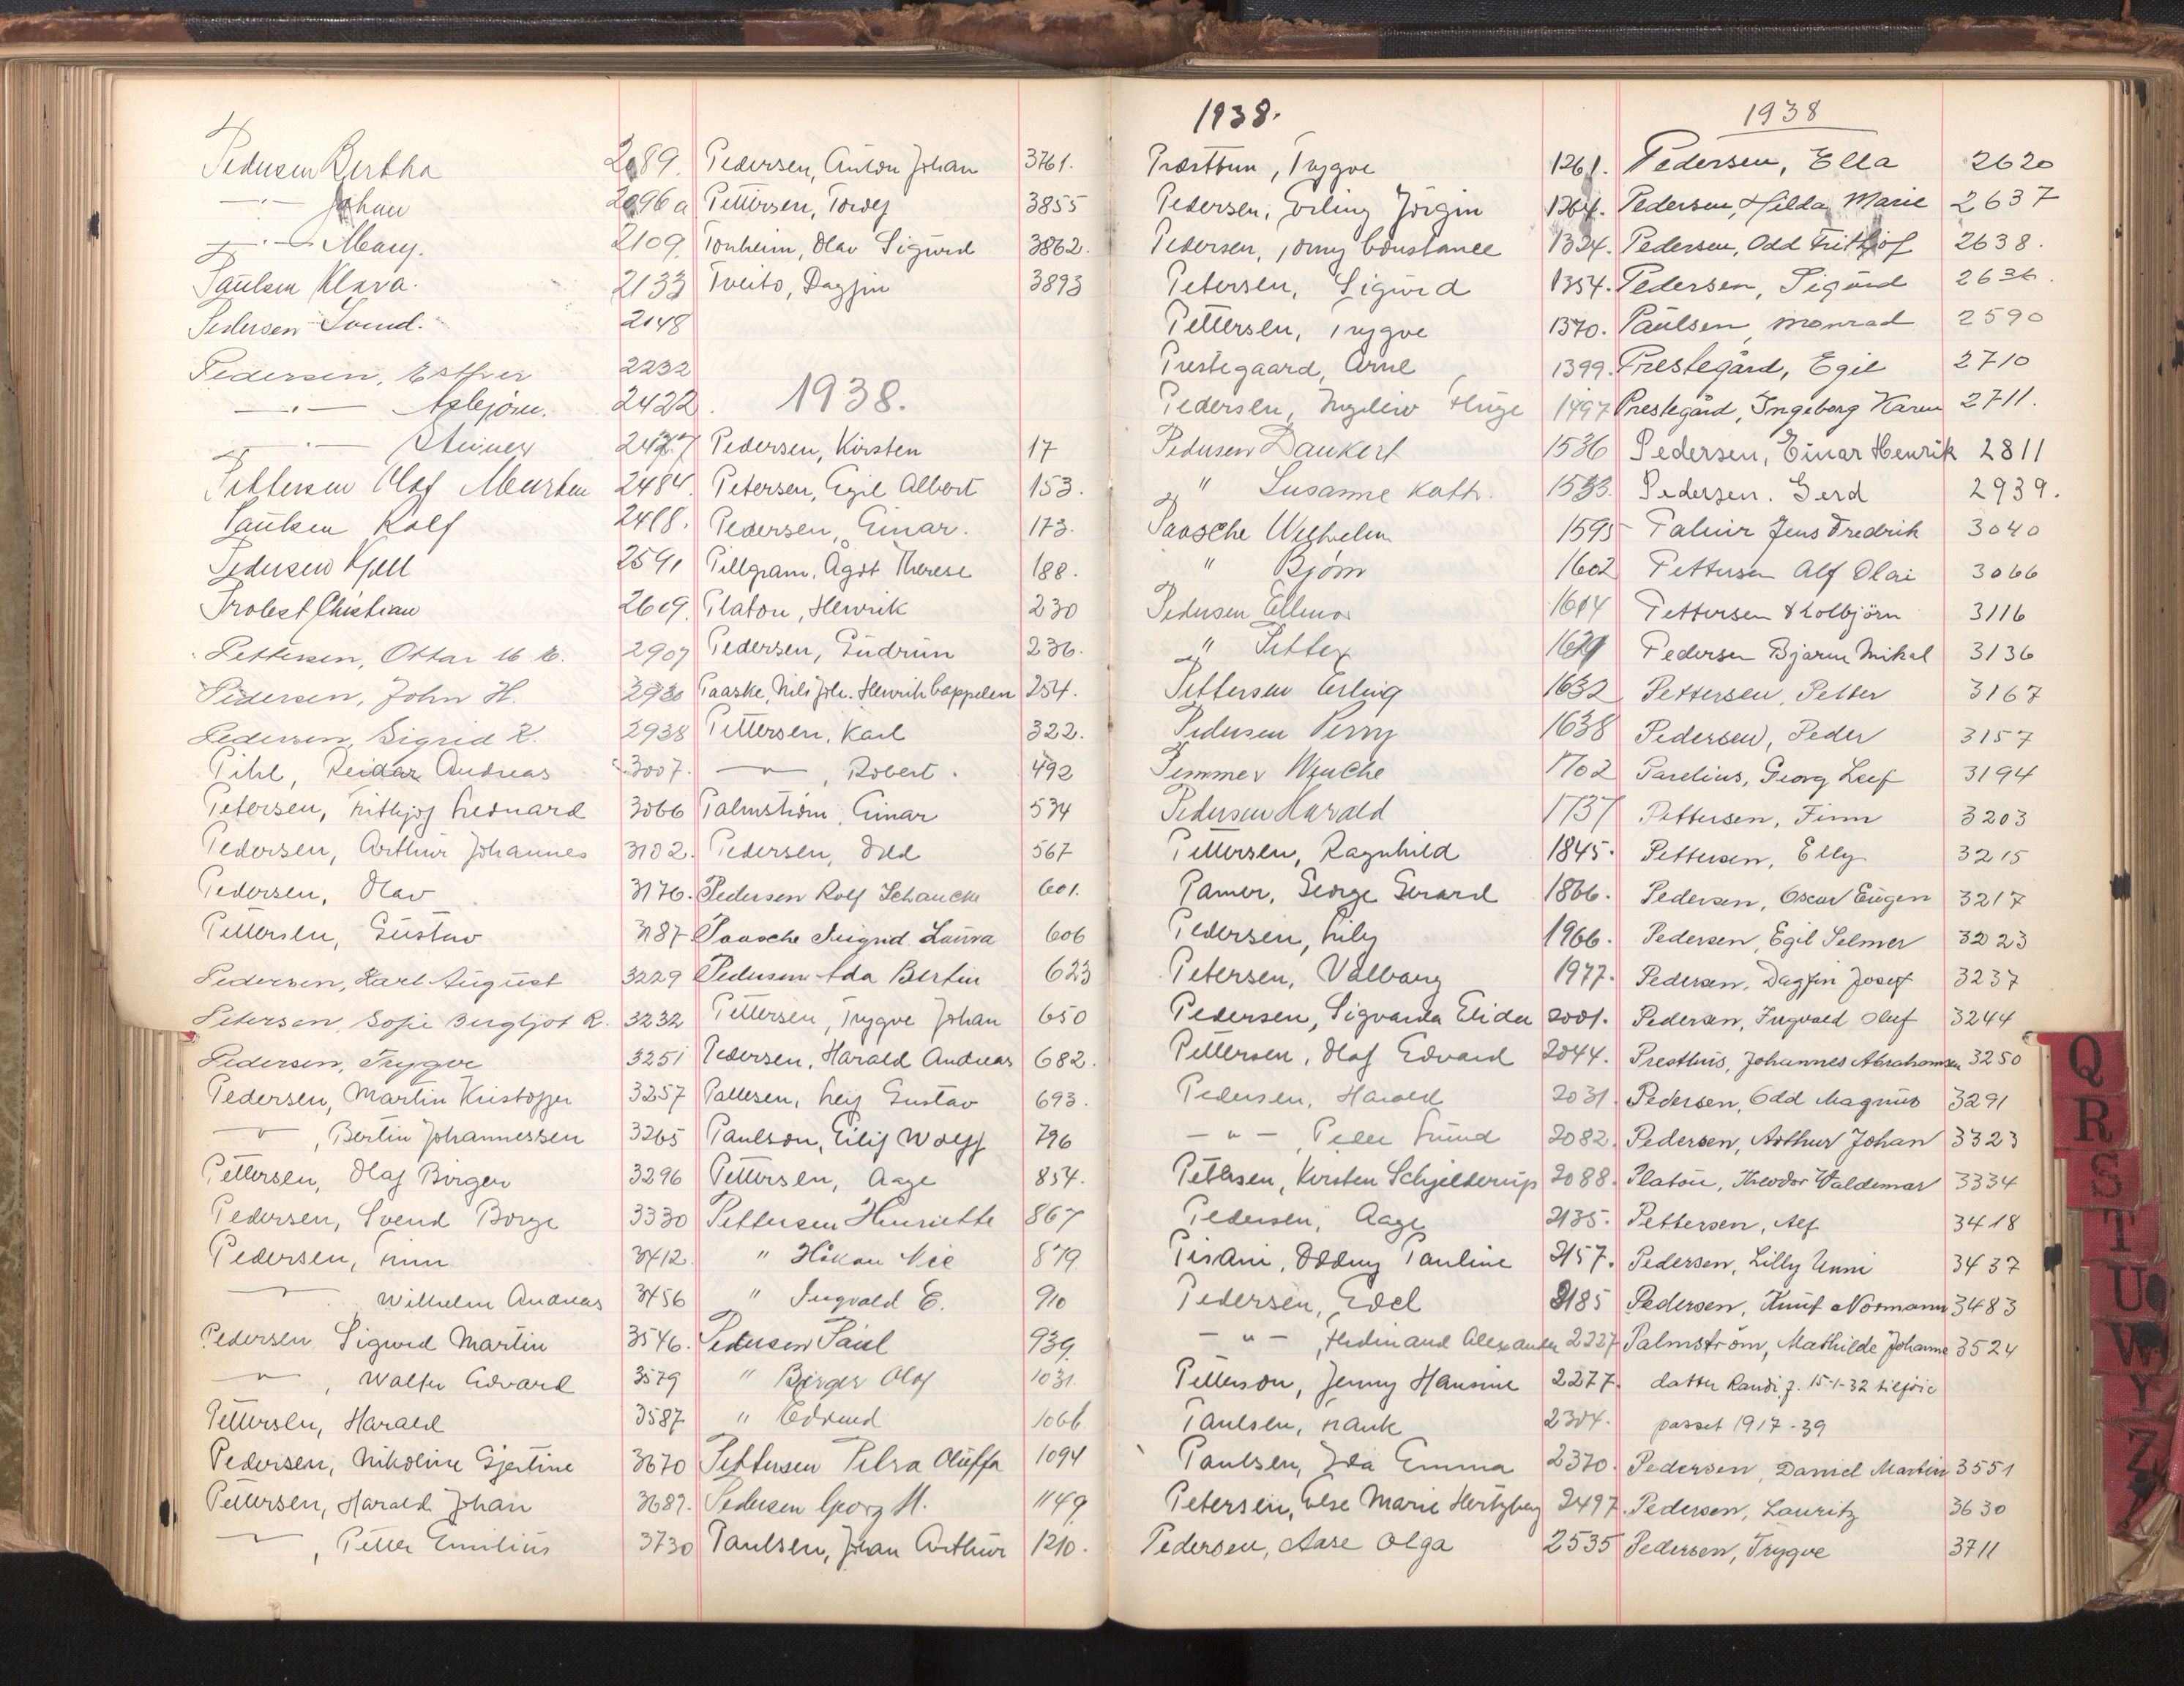 Pedersen Bertha 2089.
—"— Johan 2096a
—"— Mary. 2109
Paulsen Klara. 2133
Pedersen Svend. 2148
Pedersen, Esther 2232
—"— Asbjørn. 2422
—"— Steiner 2427
Pettersen Olaf Marten 2484
Paulsen Rolf 2488.
Pedersen Kjell 2591
Probest Christian 2609
Pettersen, Ottar M. E. 2907
Pedersen, John H. 2930
Pedersen, Sigrid K. 2938
Pihl, Reidar Andreas 3007.
Petersen, Frithjof Leonard 3066
Pedersen, Arthur Johannes 3102.
Pedersen, Olav 3176.
Pettersen, Gustav 3187
Pedersen, Karl August 3229
Petersen, Sofie Bergljot R. 3232
Pedersen, Trygve 3251
Pedersen, Martin Kristoffer 3257
—"—, Bertin Johannessen 3265
Pettersen, Olaf Birger 3296
Pedersen, Svend Borge 3330
Pedersen, Finn 3412.
—"— Wilhelm Andreas 3456
Pedersen Sigurd Martin 3546.
—"—, Walter Edvard 3579
Pettersen, Harald 3587
Pedersen, Nikoline Gjertine 3670
Pettersen, Harald Johan 3687.
—"—, Petter Emilius 3730
Pedersen, Anton Johan 3761.
Pettersen, Tordis 3855
Tonheim, Olav Sigurd 3862.
Tveito, Dagfin 3893
1938.
Pedersen, Kirsten 17
Petersen, Egil Albert 153.
Pedersen, Einar. 173.
Pillgram, Ågot Therese 188.
Platou, Henrik 230
Pedersen, Gudrun 236.
Paaske, Nils Joh. Henrik Cappelen 254.
Pettersen, Karl 322.
—"—, Robert. 492
Palmstrøm, Einar 534
Pedersen, Odd 567
Pedersen Rolf Schancke 601.
Paasche Sigrid Laura 606
Pedersen Ada Bertin 623
Pettersen, Trygve Johan 650
Pedersen, Harald Andreas 682.
Pallesen, Leif Gustav 693.
Paulson, Eilif Wolff 796
Pettersen, Aage 854.
Pettersen Henriette 867
" Håkon Nic 879
" Ingvald E. 910
Pedersen Paul 939
" Birger Olaf 1031.
" Edvind 1066
Pettersen Petra Oluffa 1094
Pedersen Georg H. 1149
Paulsen, Johan Arthur 1210.
1938.
Præsttun, Trygve 1261.
Pedersen, Erling Jørgen 1264.
Pedersen, Jonny Constance 1324.
Petersen, Sigurd 1354.
Pettersen, Trygve 1370.
Prestegaard, Arne 1399.
Pedersen, Huge 1497
Pedersen Dankert 1536
" Susanne Kath. 1533.
Paasche Wilhelm 1595
" Bjørn 1602
Pedersen Ellinor 1614
" Petter 1629
Pettersen Erling 1632
Pedersen Perry 1638
Pemmer Wenche 1702
Pedersen Harald 1737
Pettersen, Ragnhild 1845.
Pamer, George Gerard 1866.
Pedersen, Lily 1966.
Petersen, Valborg 1977.
Pedersen, Sigvarda Elida 2001.
Pettersen, Olaf Edvard 2044.
Pedersen, Harald 2031.
—"—, Peder Lund 2082.
Pettersen, Kirsten Schjelderup 2088.
Pedersen, Aage 2135.
Pisani, Oddny Pauline 2157.
Pedersen, Edel 2185
—"—, Ferdinand Alexander 2227
Petterson, Jenny Hansine 2277.
Paulsen, Frank 2304.
Paulsen, Ida Emma 2370.
Petersen, Else Marie Hertzberg 2497.
Pedersen, Aase Olga 2535
1938
Pedersen, Ella 2620
Pedersen, Hilda Marie 2637
Pedersen, Odd Frithjof 2638.
Pedersen, Sigurd 2636.
Paulsen, Monrad 2590
Prestegård, Egil 2710
Prestegård, Ingeborg Karen 2711.
Pedersen, Einar Henrik 2811
Pedersen. Gerd 2939.
Palmir Jens Fredrik 3040
Pettersen Alf Olai 3066
Pettersen Kolbjörn 3116
Pedersen Bjarne Mikal 3136
Pettersen, Petter 3167
Pedersen, Peder 3157
Parelius, Georg Leif 3194
Pettersen, Finn 3203
Pettersen, Elly 3215
Pedersen, Oscar Eugen 3217
Pedersen, Egil Selmer 3223
Pedersen, Dagfin Josef 3237
Pedersen, Ingvald Oluf 3244
Presthus, Johannes Abrahamsen 3250
Pedersen, Odd Magnus 3291
Pedersen, Arthur Johan 3323
Platou, Theodor Valdemar 3334
Pettersen, Alf 3418
Pedersen, Lilly Unni 3437
Pedersen, Knut Normann 3483
Palmström, Mathilde Johanne 3524
datter Randi f. 15-1-32 tilføiet
passet 1917-39
Pedersen, Daniel Martin 3551
Pedersen, Lauritz 3630
Pedersen, Trygve 3711
Q
R
S
T
U
W
Y
Z